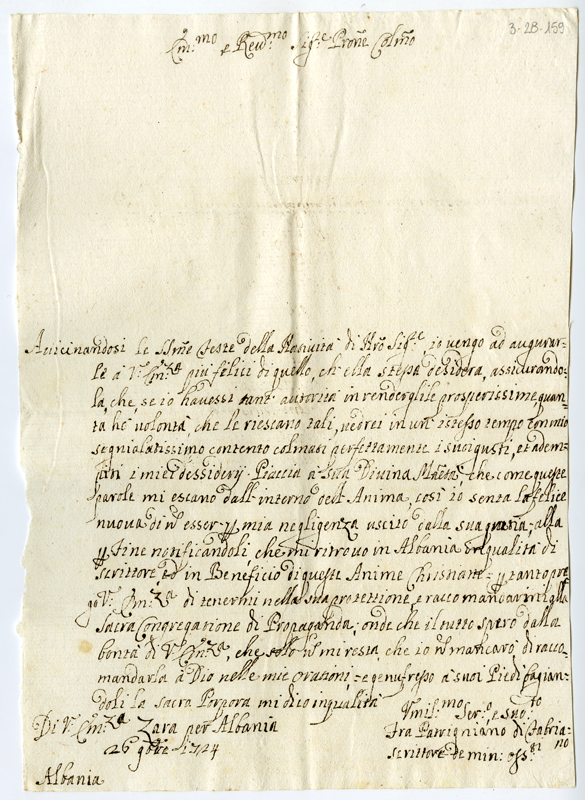 3-2B-159
Em:mo e Rev:mo Sig:e Prone Colmo
Avicinandosi le SSme feste della Nativita di Nro Sig:e io vengo ad augurar-
le à V: Em:za più felici di quello, ch ella stessa desidera, assicurando-
la, che, se io havessi tant' autorità in renderglile prosperissime quan-
ta hò volontà, che le riescano tali, vedrei in un' istesso tempo con mio
segnialatissimo contento colmati perfettamente i suoi gusti, et adem-
piti i miei dessiderij. Piaccia a Sua Divina Maestà che come queste
parole mi escano dall' interno dell' Anima, così io senta la felice
nuova di esser mia negligenza uscito dalla sua gratia, alla
fine notificandoli, che mi ritrovo in Albania in qualità di
scrittore, ed in Beneficio di queste Anime Christiane tanto pre
go V: Em:za di tenermi nella sua protettione, e raccomandarmi alla
Sacra Congregatione di Propaganda; onde che il tutto spero dalla
bontà di V: Em:za, che solo mi resta che io mancarò di racco-
mandarla à Dio nelle mie orationi, e genuflesso a suoi Piedi bagian-
doli la sacra Porpora mi dico in qualità
Di V: Em:za Zara per Albania
26 9bre 1724
Umil:mo Ser: e sud:to
Fra Patrigniano di Fabria-
no
scrittore de min: oss:ti
Albania